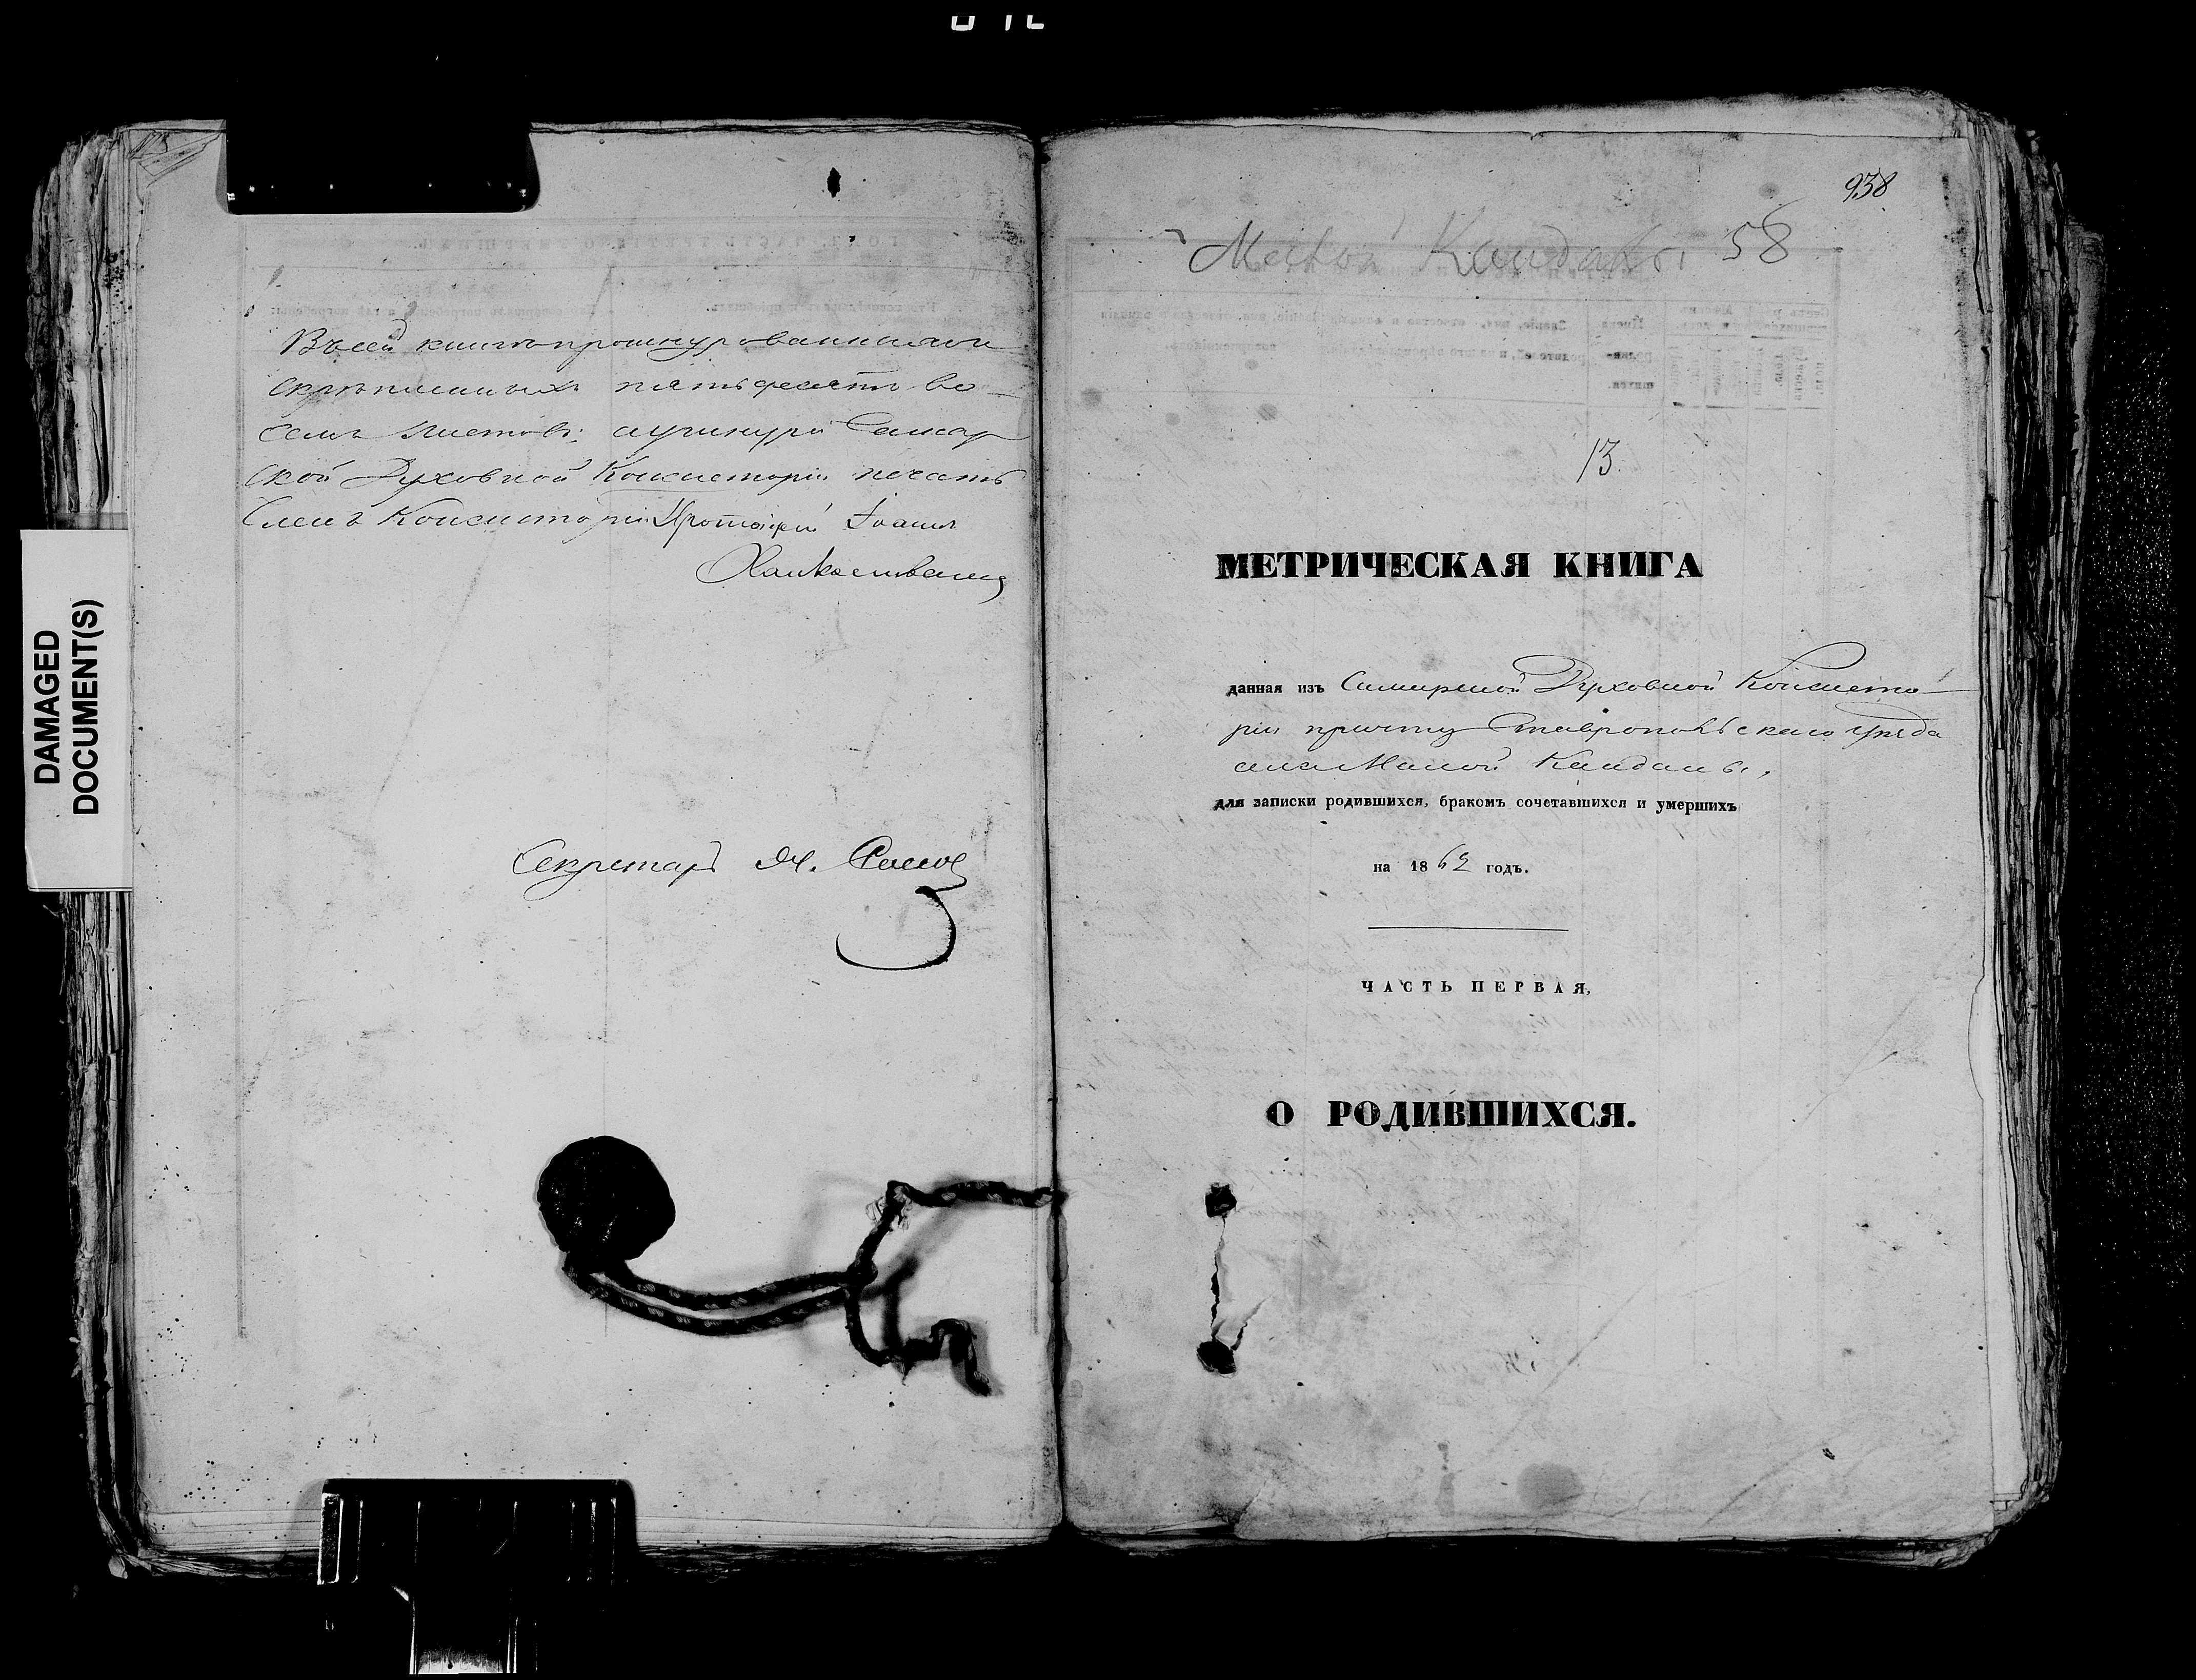 DAMAGED
DOCUMENT(S)
Въ сей книге прошнурованныхъ и
скрѣпленныхъ пятьдесятъ во-
семь листовъ; а у шнура Самар
ской Духовной Консисторіи печать
Членъ Консисторіи Протоіерей Іоаннъ
Секретарь
938
Малой Кандалы 58
13.
МЕТРИЧЕСКАЯ КНИГА
данная изъ Самарской Духовной Консисто-
ріи причту Ставропольскаго уѣзда
села Малой Кандалы,
для записки родившихся, бракомъ сочетавшихся и умершихъ
на 1862 годъ.
ЧАСТЬ ПЕРВАЯ,
О РОДИВШИХСЯ.